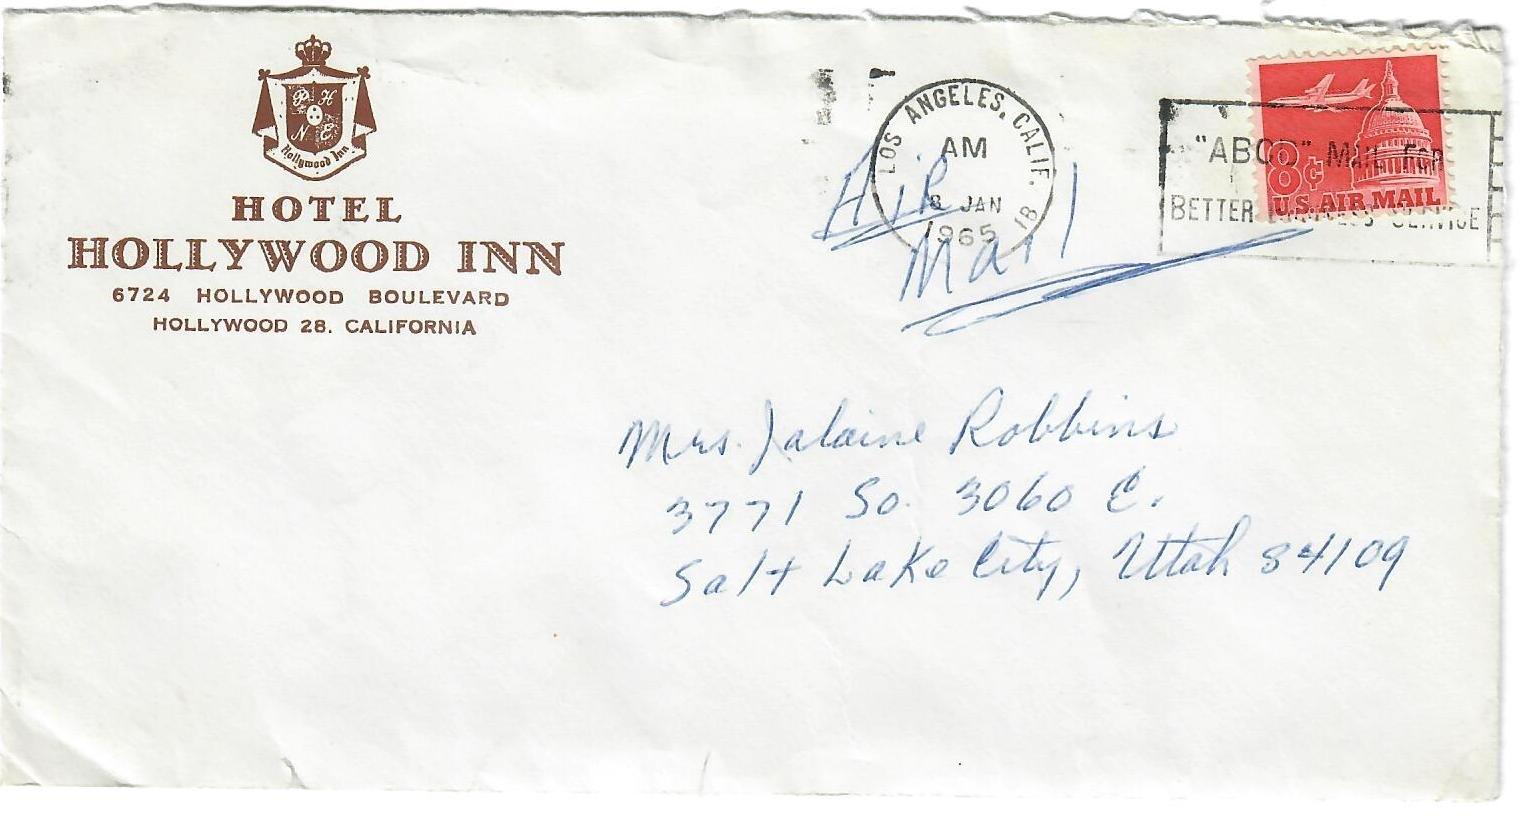 P H
N E
Hollywood Inn
HOTEL
HOLLYWOOD INN
6724 HOLLYWOOD BOULEVARD
HOLLYWOOD 28, CALIFORNIA
LOS ANGELES, CALIF. 18
AM
8 JAN
1965
"ABCD" MAIL FOR
BETTER BUSINESS SERVICE
8¢
U.S. AIR MAIL
Air
Mail
Mrs. Jalaine Robbins
3771 So. 3060 E.
Salt Lake City, Utah 84109